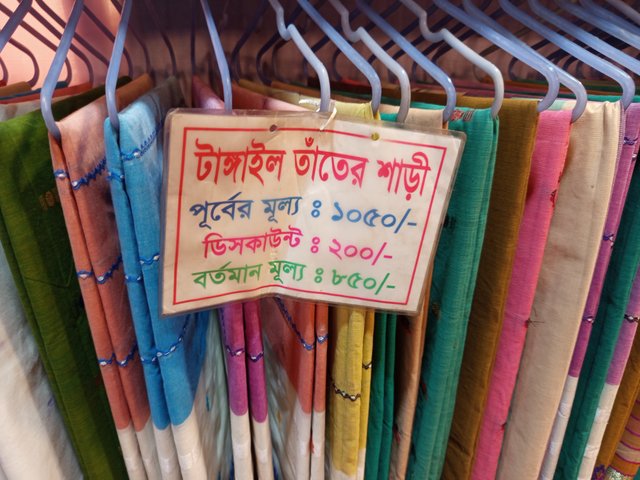 টাঙ্গাইল তাঁতের শাড়ী
পূর্বের মূল্য ঃ ১০৫০/-
ডিসকাউন্ট ঃ ২০০/-
বর্তমান মূল্য ঃ ৮৫০/-